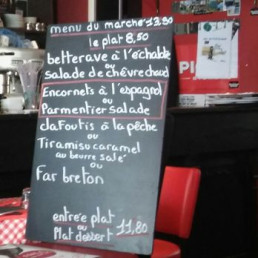 menu du marché 13,80
le plat 8,50
betterave à l'échalote
ou
salade de chèvre chaud
Encornets à l'espagnol
ou
Parmentier salade
clafoutis à la pêche
ou
Tiramisu caramel
au beurre salé
ou
Far breton
entrée plat
ou 11,80
Plat dessert